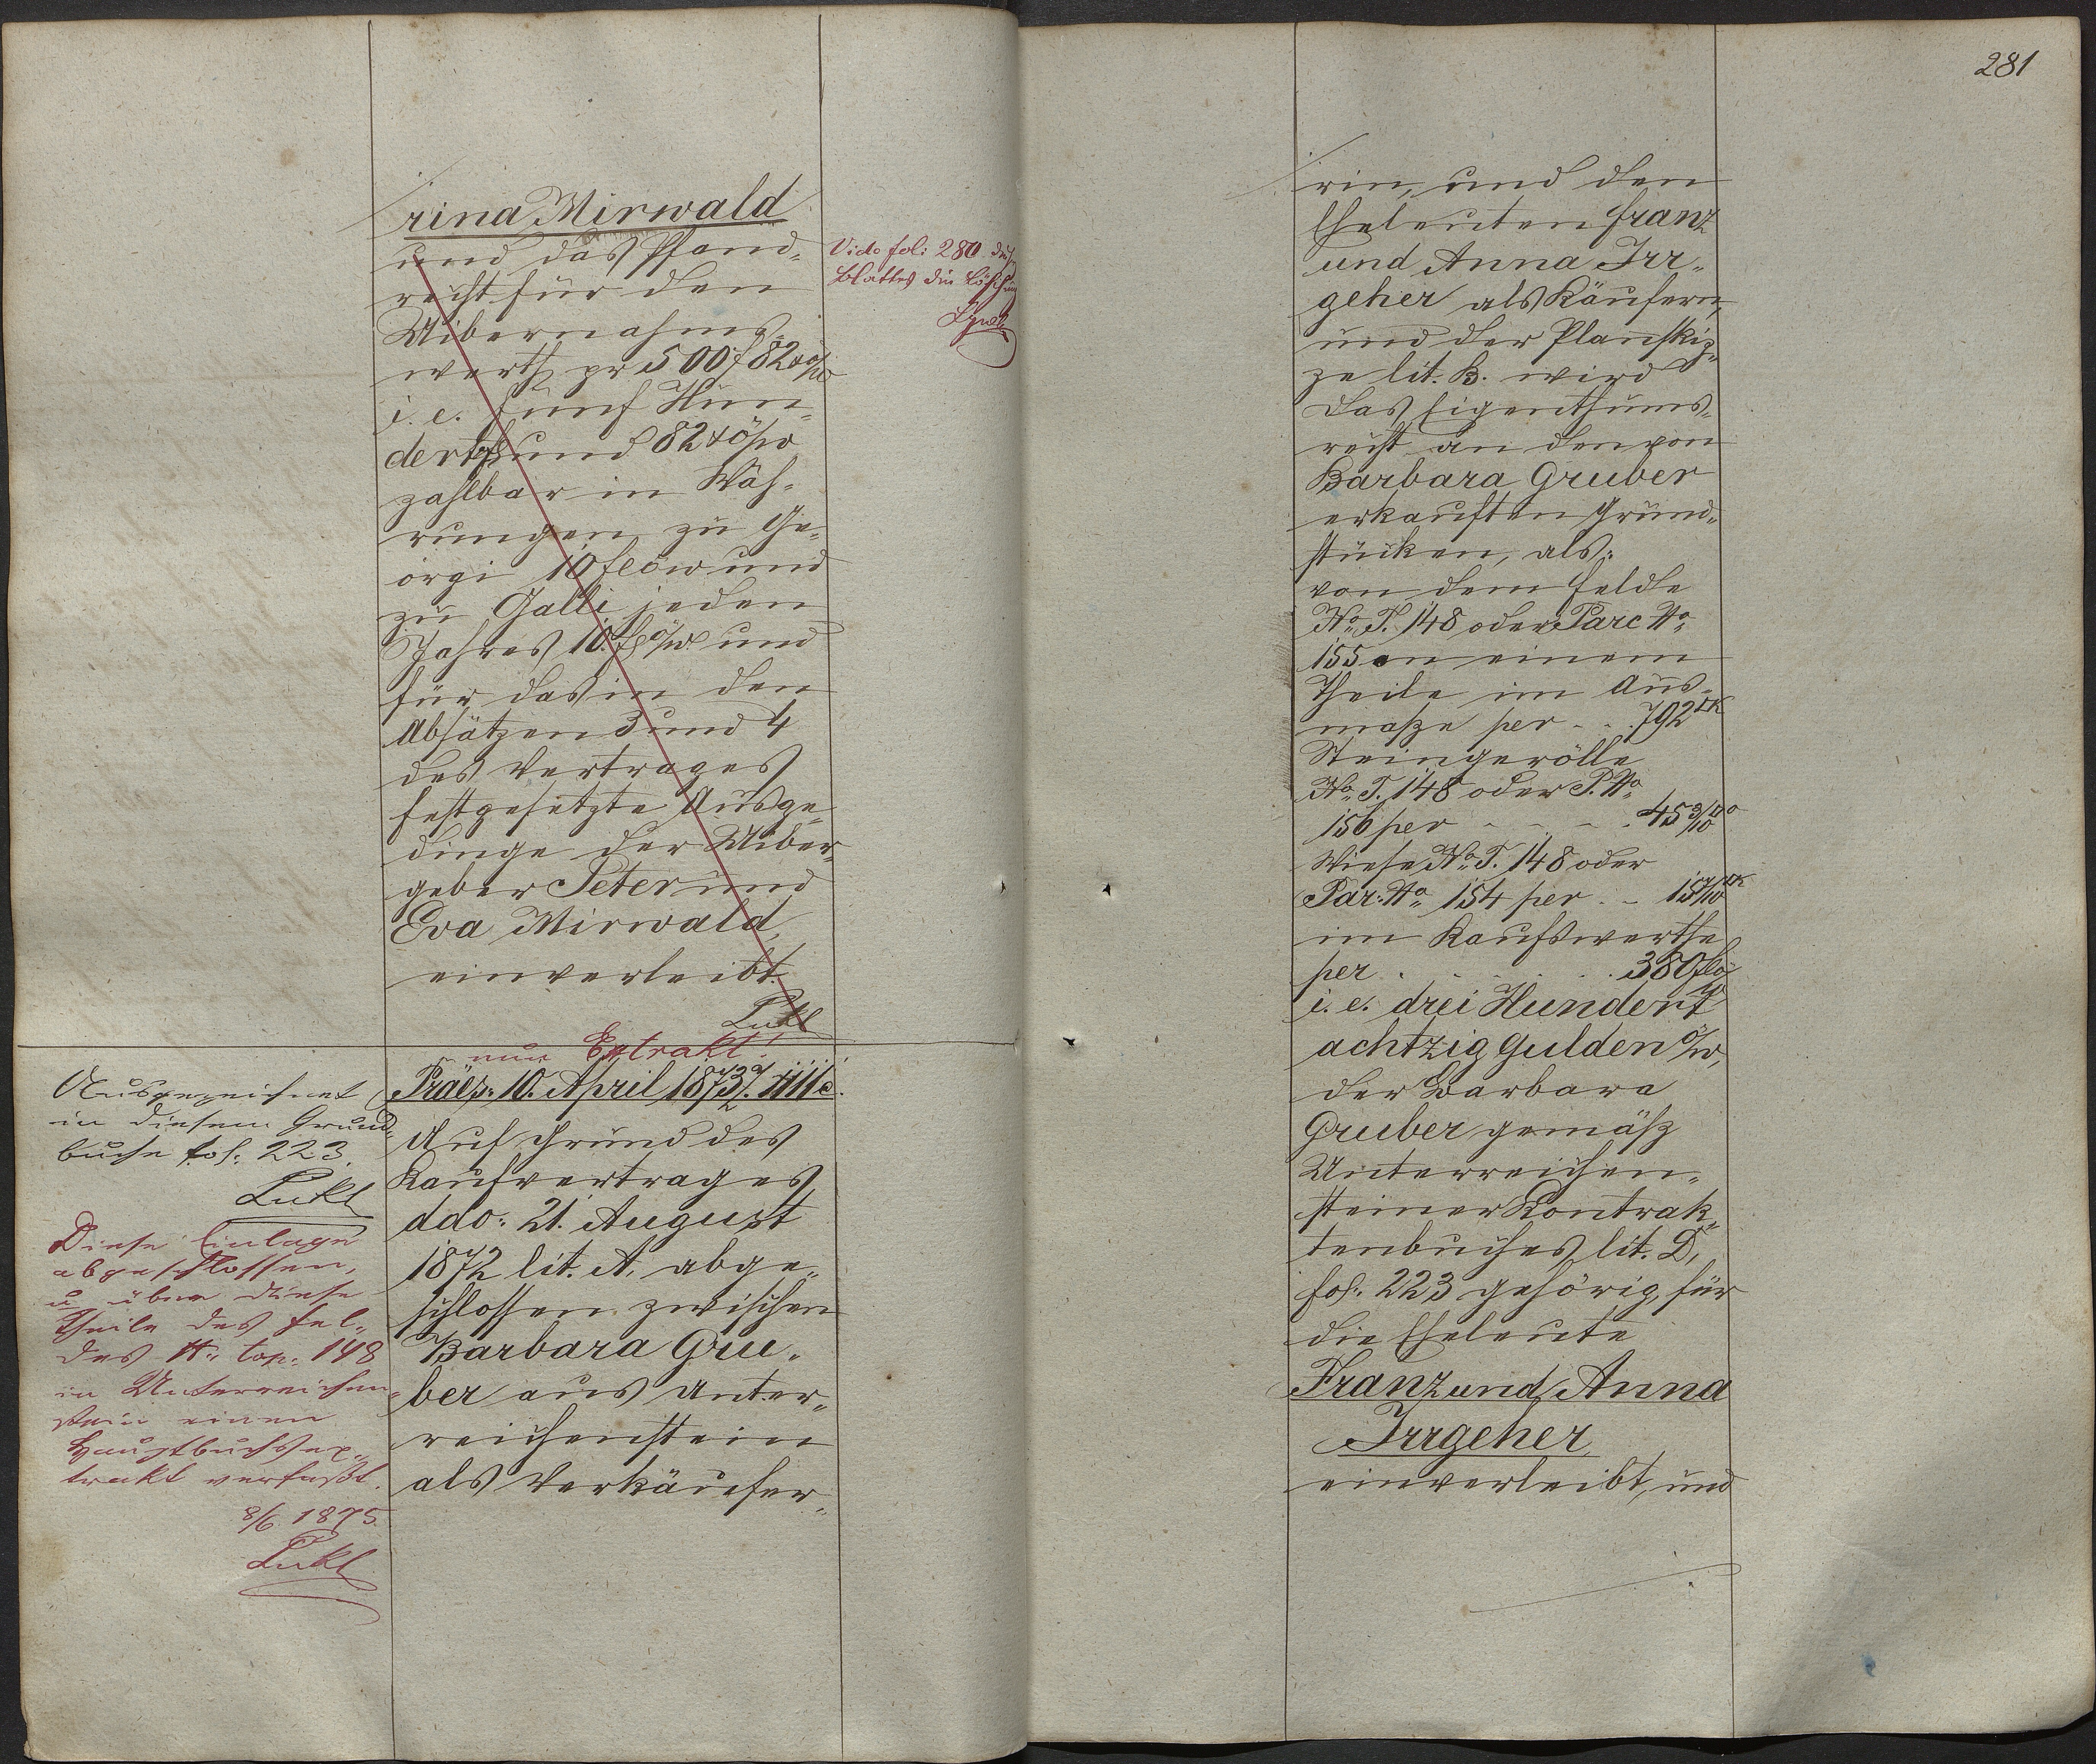 rina Mirwald
und das Pfand-
recht für den
Uibernahms-
werth pr 500 f 82 x ö/w
i. e. fünf Hun-
dert fl und 82 x ö/w
zahlbar in Wäh-
rungen zu Ge-
orgi 10 fl ö w und
zu Galli jeden
Jahres 10 fl ö/w und
für das in den
Absätzen 3 und 4
des Vertrages
festgesetzte Ausge-
dinge der Uiber-
geber Peter und
Eva Mirwald,
einverleibt.
Lukl
Vide fol: 280 
Blattes die Löschung
nur Extrakt!
Präs: 10. April 1873
Auf Grund des
Kaufvertrages
ddo: 21. August
1872 lit. A. abge-
schlossen zwischen
Barbara Gru-
ber aus Unter-
reichenstein
als Verkäufer-
Ausgezeichnet
in diesem Grund-
buche fol: 223.
Lukl
Diese Einlage
abgeschlossen,
u über diese
Theile des Fel-
des N: top: 148
in Unterreichen-
stein einen
Hauptbuchsex-
trakt verfaßt.
8/6 1875.
Lukl
281
rin, und den
Eheleuten Franz
und Anna Irr-
geher als Käufern,
und der Planskiz-
ze lit. B. wird
das Eigenthums-
recht an den von
Barbara Gruber
erkauften Grund-
stücken, als:
von dem Felde
No T. 148 oder Parc No
155 an einem
Theile im Aus-
maße per - - 792
Steingerölle
No T. 148 oder P. No
156 per - - - - 45 3/10
Wiese No T. 148 oder
Par: No 154 per - -
im Kaufswerthe
per . . . . . . 380 fl ö/w
i. e. drei Hundert
achtzig Gulden ö/w,
der Barbara
Gruber gemäß
Unterreichen-
steiner Kontrak-
tenbuches lit. D,
fol: 223 gehörig, für
die Eheleute
Franz und Anna
Irrgeher
einverleibt, und